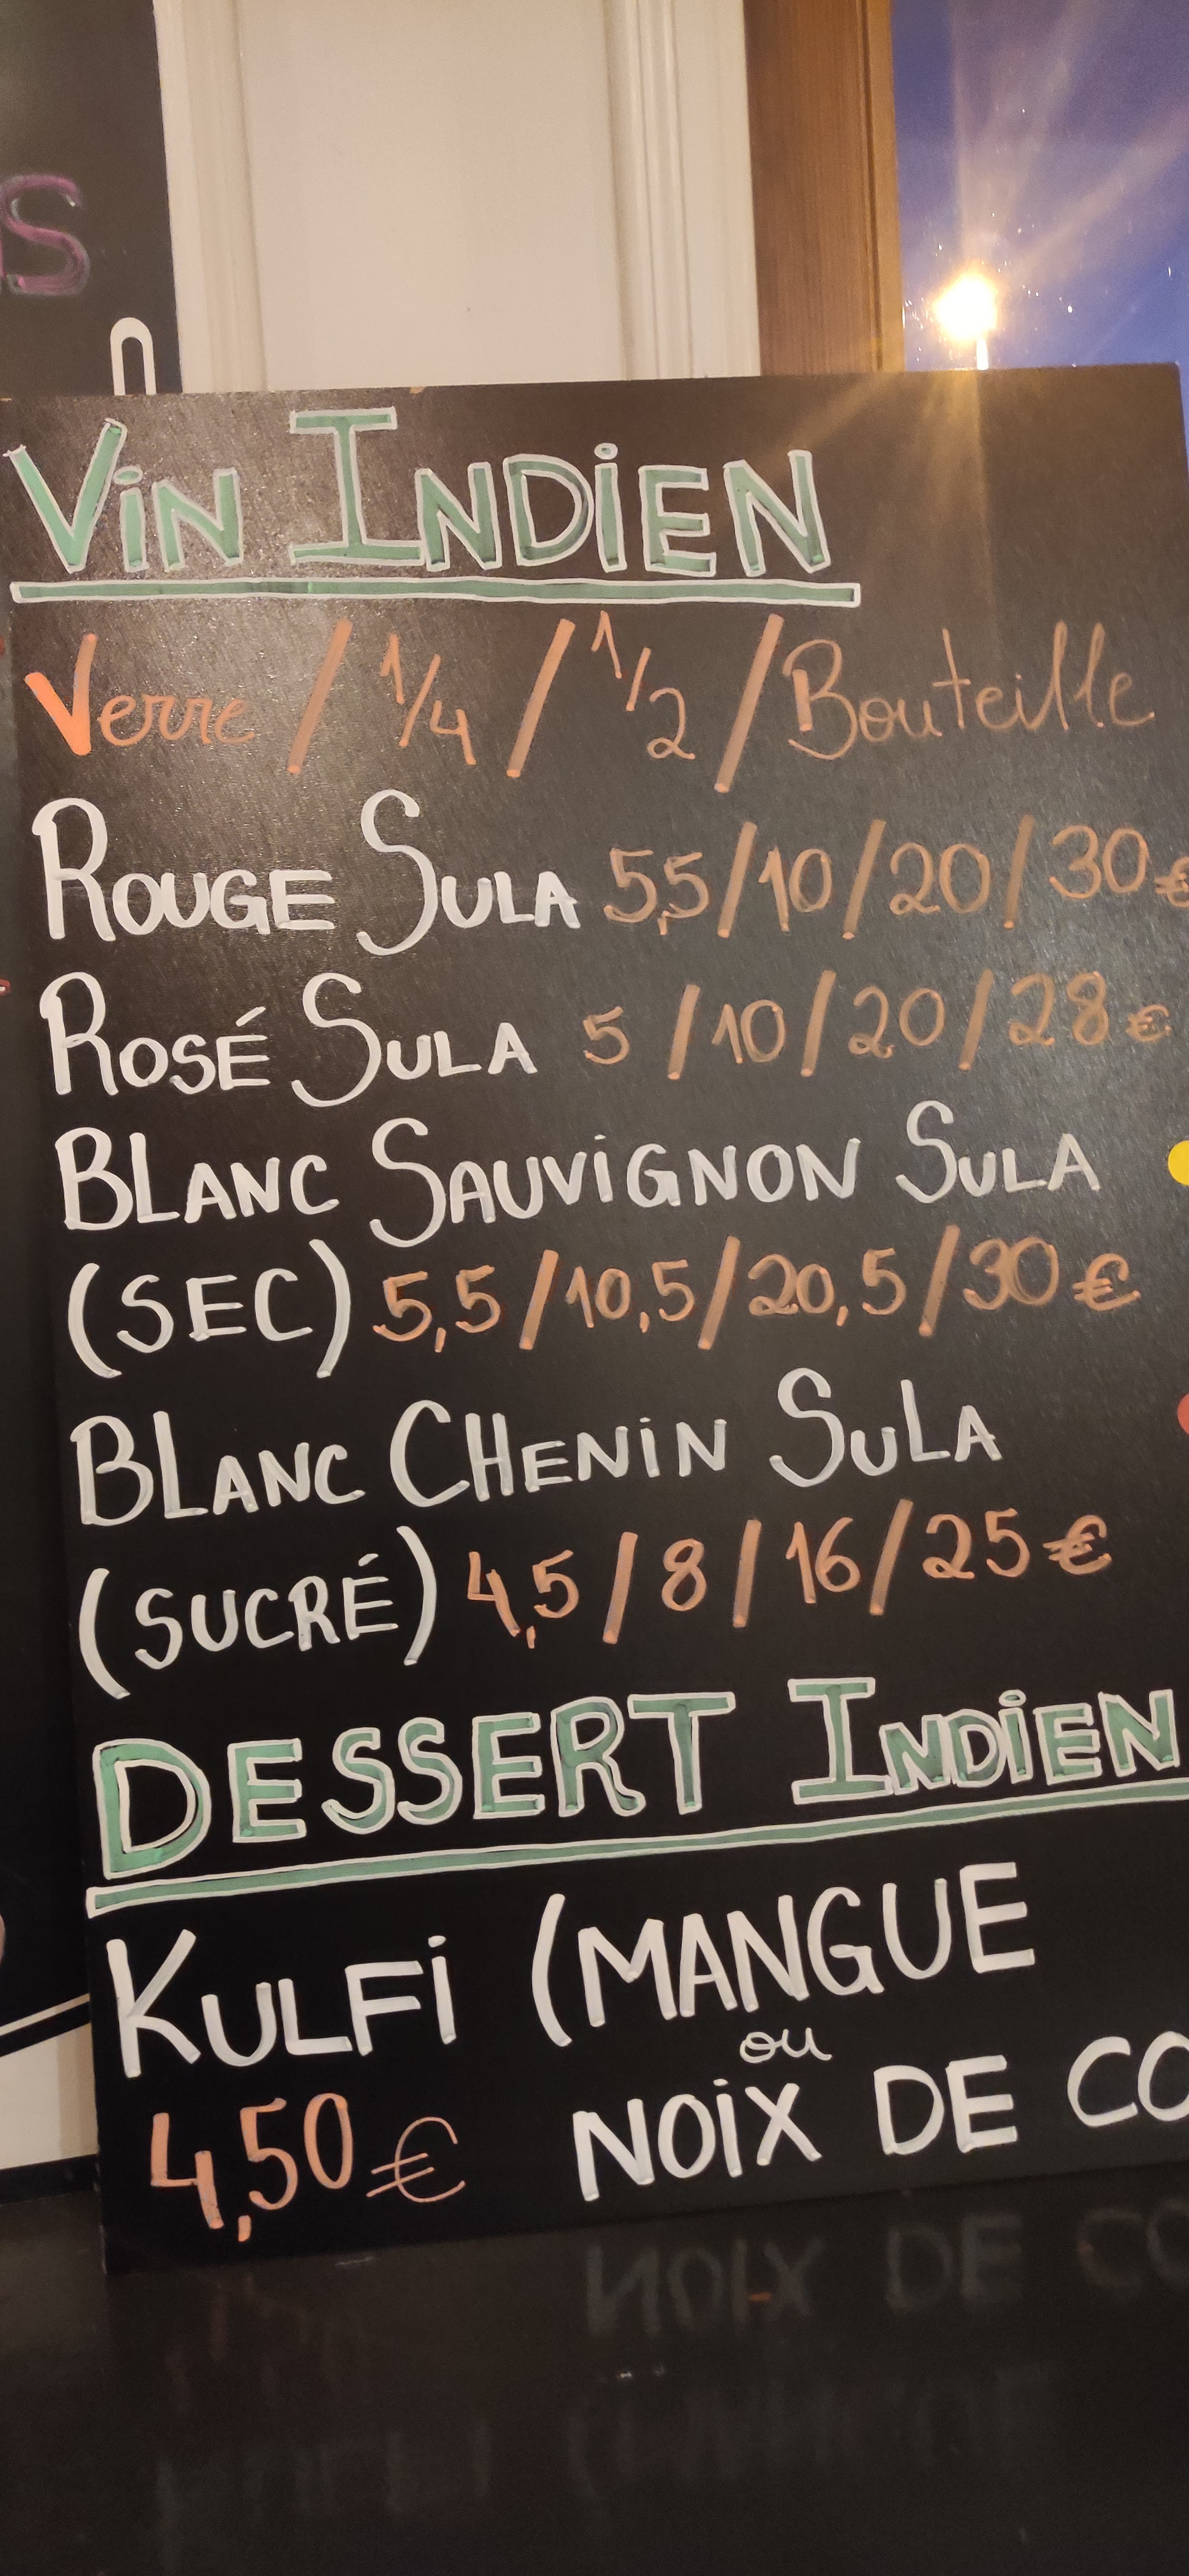 S
VIN INDIEN
Verre / 1/4 / 1/2 / Bouteille
ROUGE SULA 5,5/10/20/30€
ROSÉ SULA 5 /10/20/28€
BLANC SAUVIGNON SULA
(SEC) 5,5/10,5/20,5/30€
BLANC CHENIN SULA
(SUCRÉ) 4,5/8/16/25€
DESSERT INDIEN
KULFI (MANGUE
ou
4,50€ NOIX DE CO